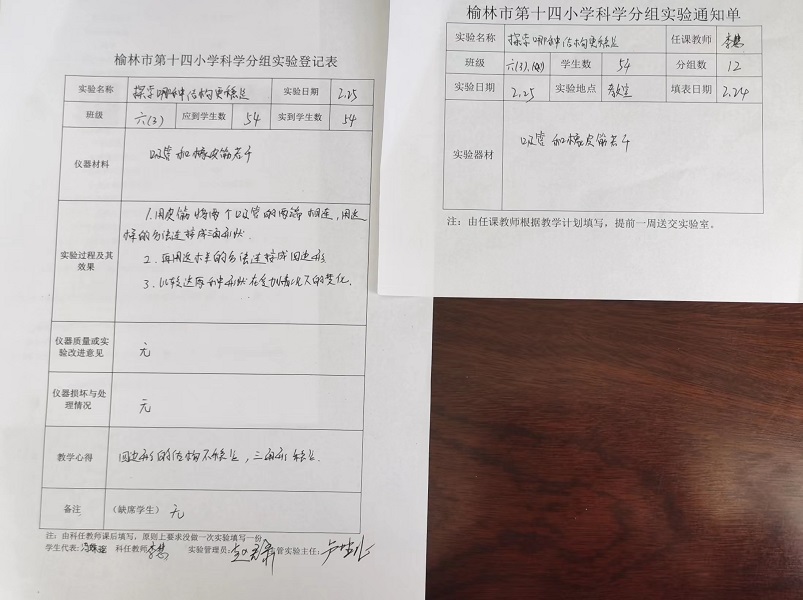 榆林市第十四小学科学分组实验登记表
实验名称 探索哪种结构更稳定 实验日期 2.25
班级 六(3) 应到学生数 54 实到学生数 54
仪器材料 吸管和橡皮筋若干
实验过程及其效果
1.用皮筋将两个吸管的两端相连,用这
样的方法连接成三角形状.
2.再用这样的方法连接成四边形
3.比较这两种形状在受力情况下的变化.
仪器质量或实验改进意见 无
仪器损坏与处理情况 无
教学心得 四边形的结构不稳定,三角形稳定.
备注 (缺席学生) 无
注:由科任教师课后填写,原则上要求没做一次实验填写一份
学生代表: 科任教师:李慧 实验管理员: 管实验主任:
榆林市第十四小学科学分组实验通知单
实验名称 探索哪种结构更稳定 任课教师 李慧
班级 六(3) 学生数 54 分组数 12
实验日期 2.25 实验地点 教室 填表日期 2.24
实验器材 吸管和橡皮筋若干
注:由任课教师根据教学计划填写,提前一周送交实验室。